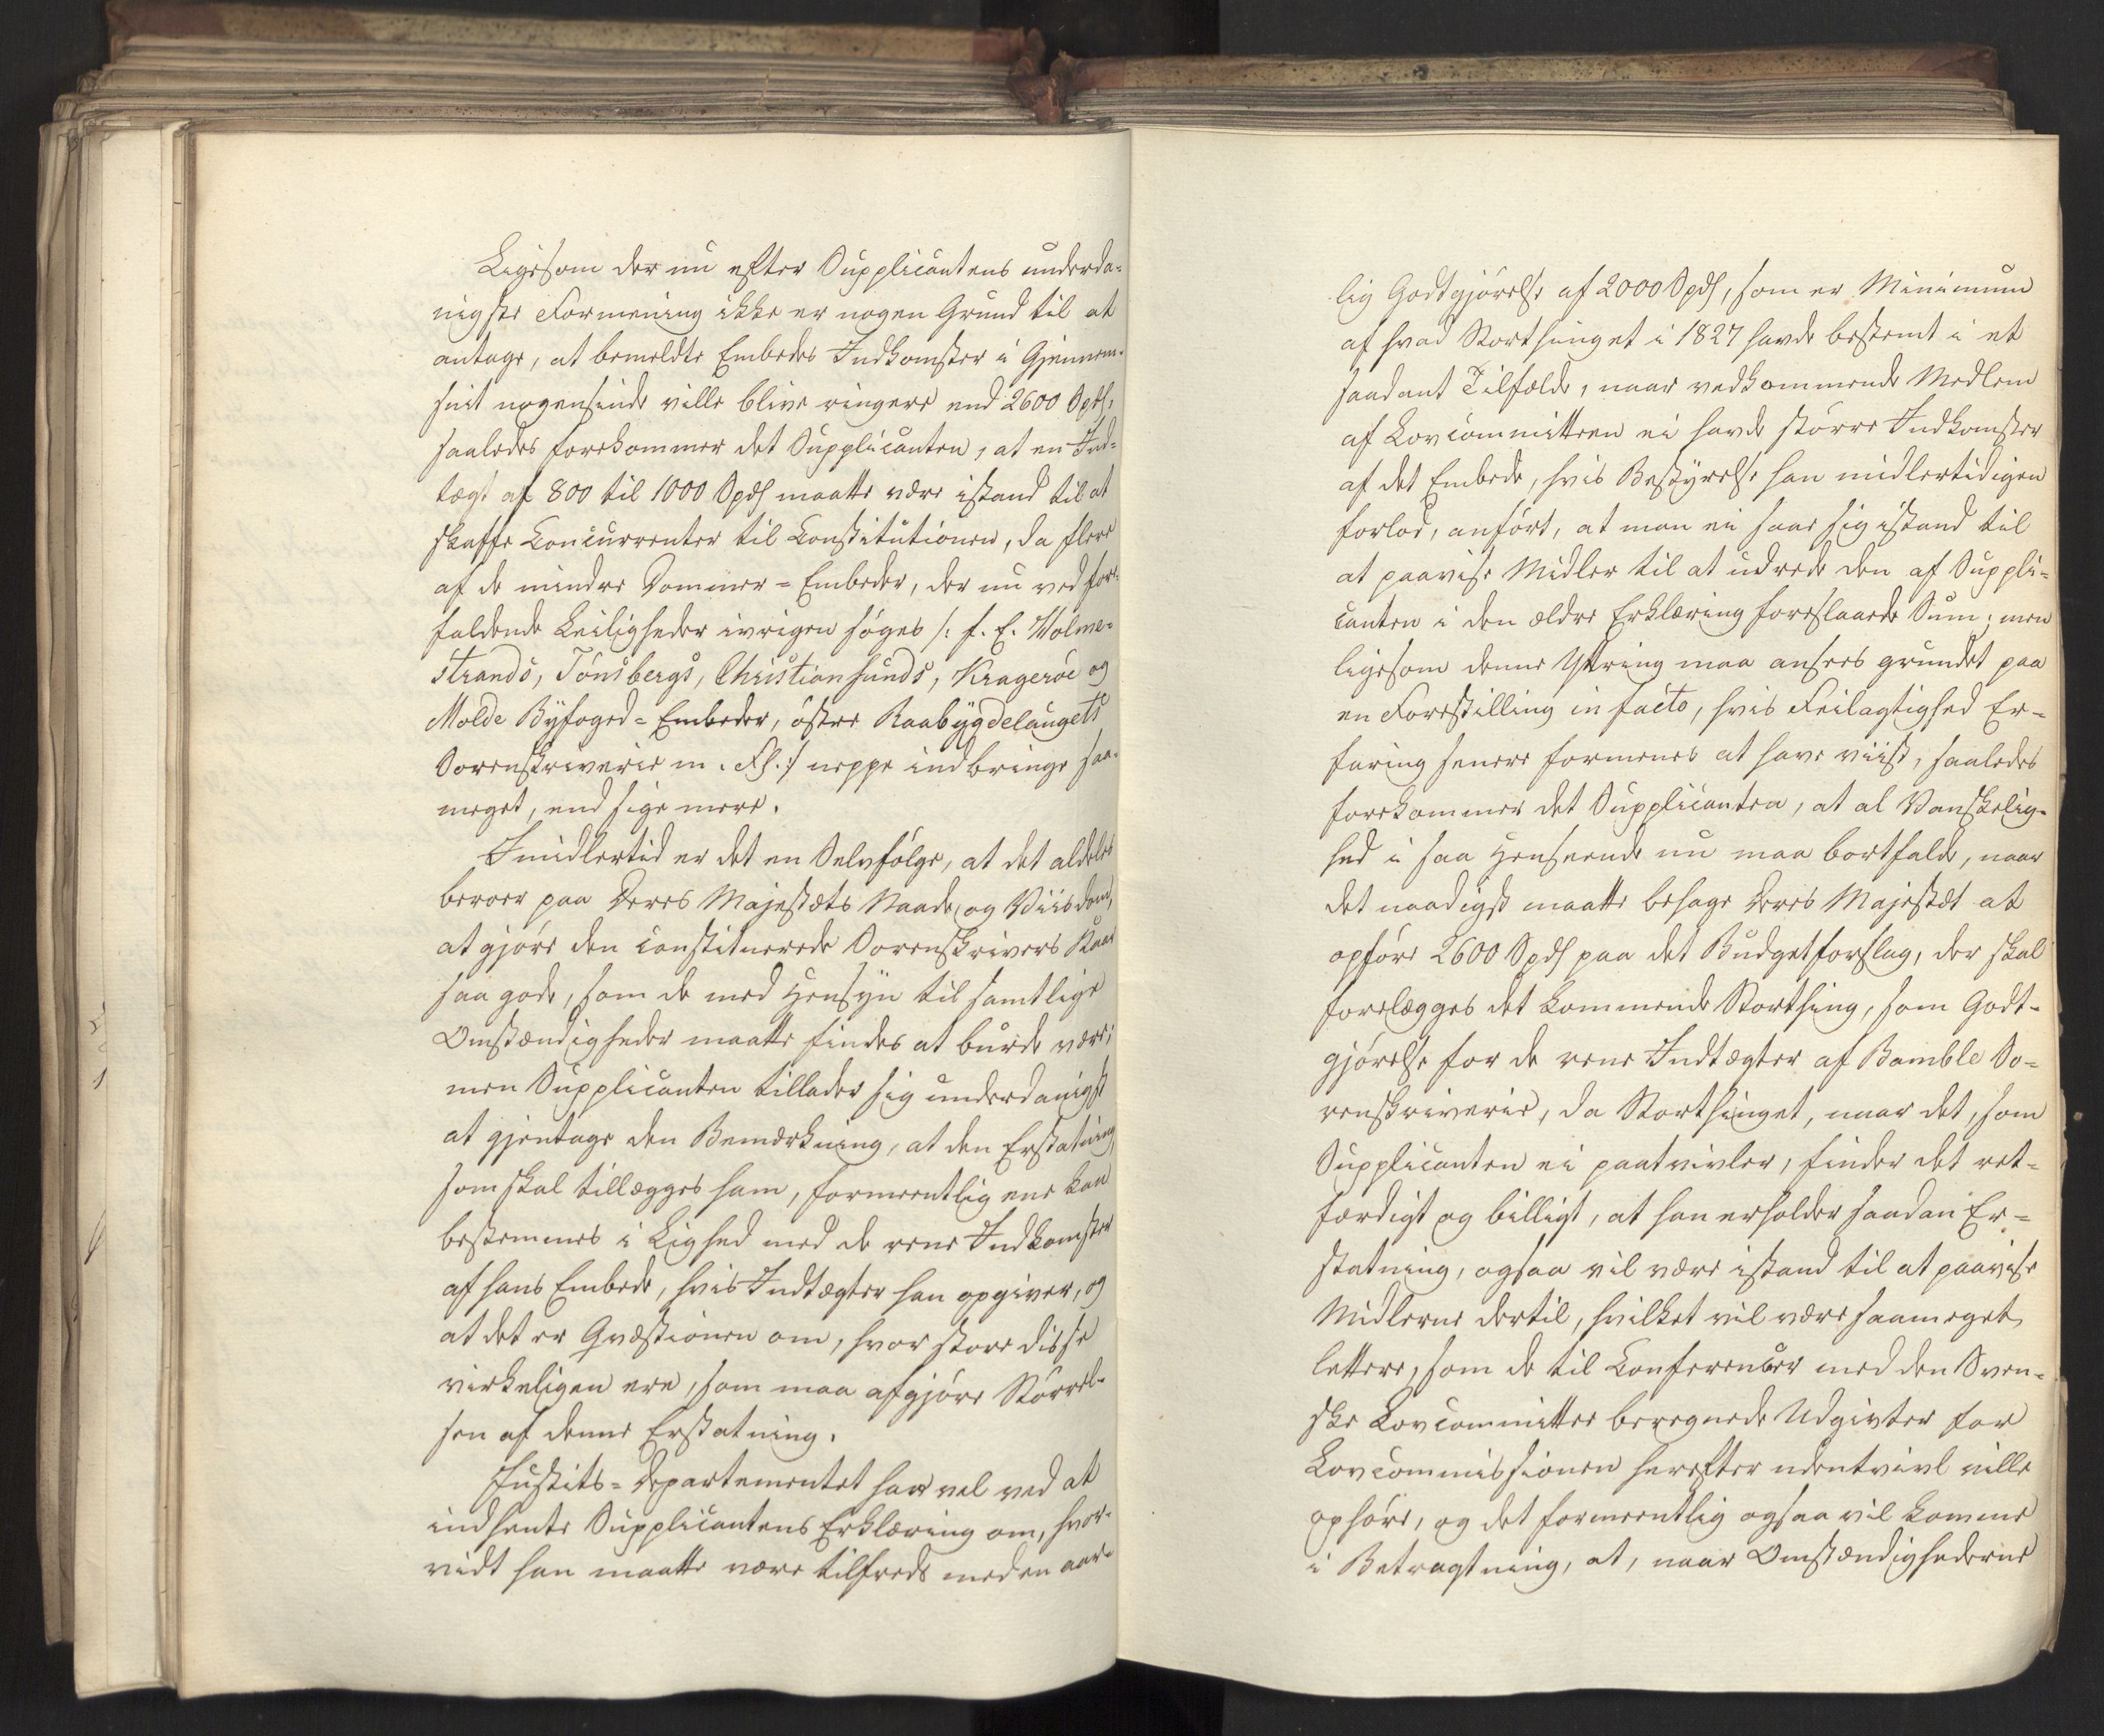 Ligesom der nu efter Supplicantens underda-
nigste Formening ikke er nogen Grund til at
antage, at bemeldte Embedes Indkomster i Gjennem-
snit nogensinde ville blive ringere end 2600 Spd,
saaledes forekommer det Supplicanten, at en Ind-
tægt af 800 til 1000 Spd maatte være istand til at
skaffe Concurrenter til Constitutionen, da flere
af de mindre Dommer-Embeder, der nu ved fore-
faldende Leiligheder ivrigen søges /: f. E. Holme-
strands, Tönsbergs, Christiansunds, Kragerøe og
Molde Byfoged-Embeder, östre Raabygdelaugets
Sorenskriverie m. Fl. :/ neppe indbringe saa-
meget, end sige mere.
Imidlertid er det en Selvfölge, at det aldeles
beroer paa Deres Majestæts Naade og Viisdom,
at gjöre den constituerede Sorenskrivers Kaar
saa gode, som de med Hensyn til samtlige
Omstændigheder maatte findes at burde være;
men Supplicanten tillader sig underdanigst
at gjentage den Bemærkning, at den Erstatning
som skal tillægges ham, formeentlig ene kan
bestemmes i Lighed med de rene Indkomster
af hans Embede, hvis Indtægter han opgiver, og
at det er Qvæstionen om, hvor store disse
virkeligen ere, som maa afgjöre Störrel-
sen af denne Erstatning.
Justits-Departementet har vel ved at
indhente Supplicantens Erklæring om, hvor-
vidt han maatte være tilfreds med en aar-
lig Godtgjörelse af 2000 Spd, som er Minimum
af hvad Storthinget i 1827 havde bestemt i et
saadant Tilfælde, naar vedkommende Medlem
af Lovcommitteen ei havde större Indkomster
af det Embede, hvis Bestyrelse han midlertidigen
forlod, anfört, at man ei saae sig istand til
at paavise Midler til at udrede den af Suppli-
canten i den ældre Erklæring foreslaaede Sum; men
ligesom denne Yttring maa ansees grundet paa
en Forestilling in facto, hvis Feilagtighed Er-
faring senere formenes at have viist, saaledes
forekommer det Supplicanten, at al Vanskelig-
hed i saa Henseende nu maa bortfalde, naar
det naadigst maatte behage Deres Majestæt at
opföre 2600 Spd paa det Budgetforslag, der skal
forelægges det kommende Storthing, som Godt-
gjörelse for de rene Indtægter af Bamble So-
renskriverie, da Storthinget, naar det, som
Supplicanten ei paatvivler, finder det ret-
færdigt og billigt, at han erholder saadan Er-
statning, ogsaa vil være istand til at paavise
Midlerne dertil, hvilket vil være saameget
lettere, som de til Conferencer med den Sven-
ske Lovcommittee beregnede Udgivter for
Lovcommissionen herefter udentvivl ville
ophöre, og det formeentlig ogsaa vil komme
i Betragtning, at, naar Omstændighederne